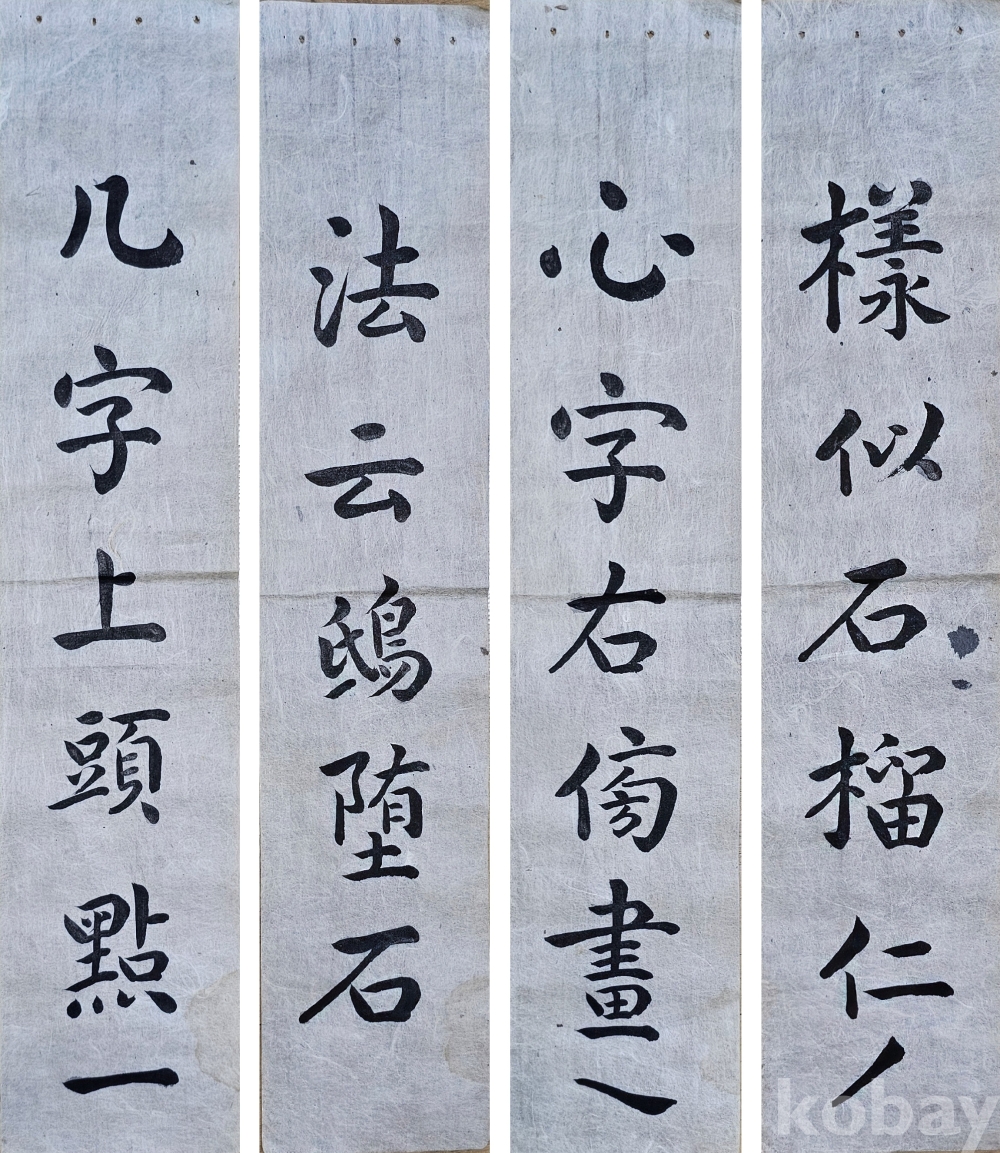 几字上頭點一
法云鴟堕石
心字右傍畫乀
樣似石榴仁丿
kobay